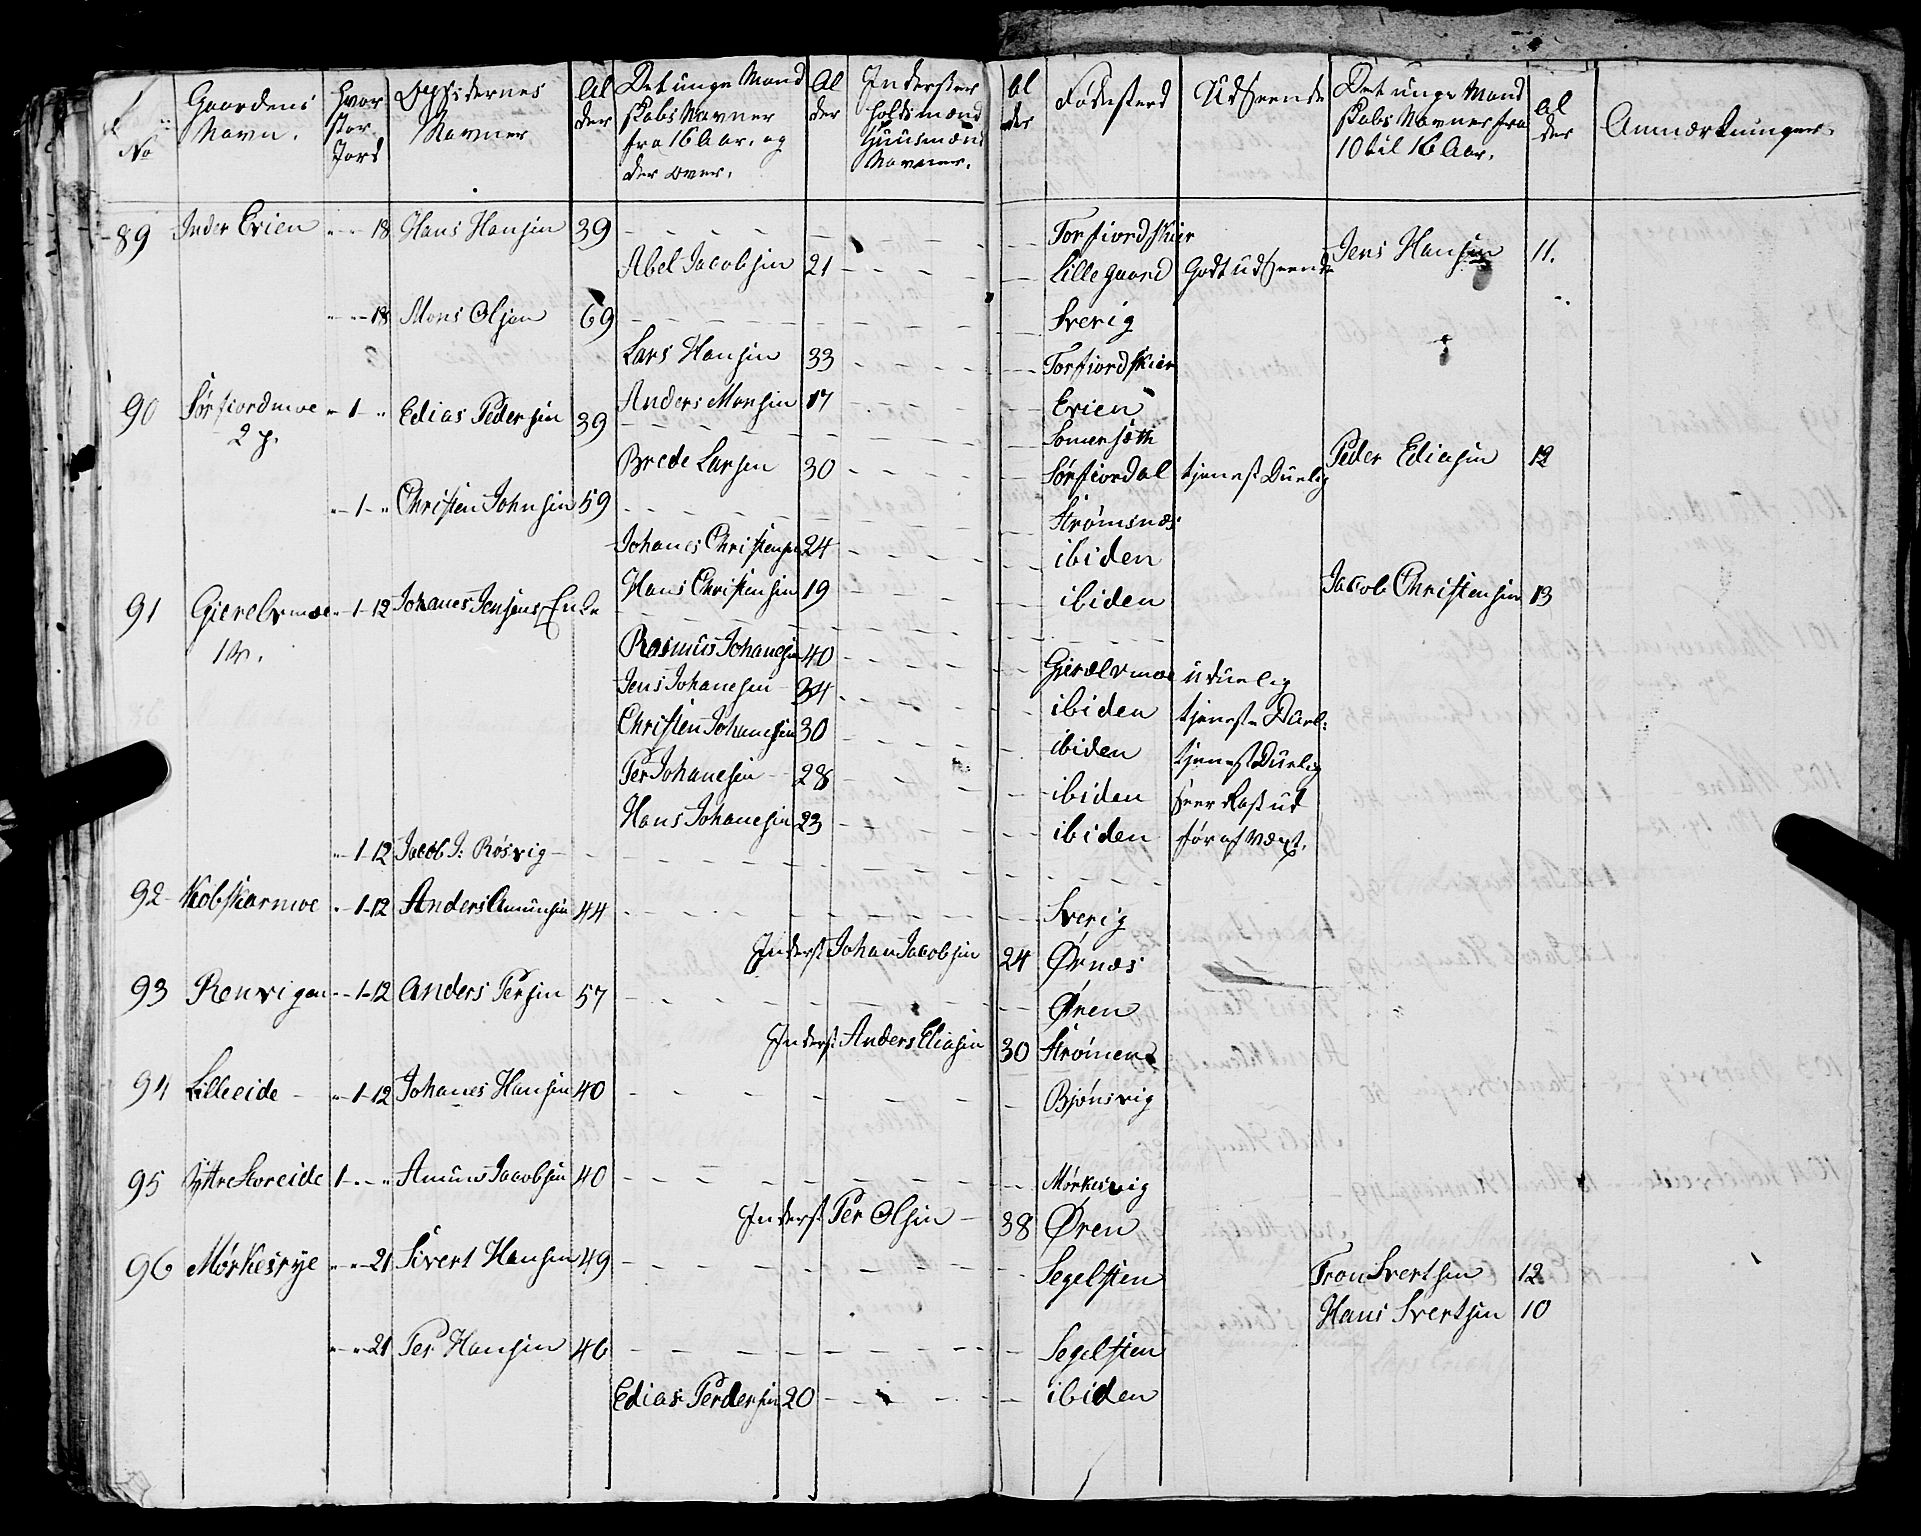 No | Gaardens Navn. | Hvor stor Jord | Opsidernes Navner | Al der | Det unge Mand skabs Navner fra 16 Aar, og der over. | Al der | Inderster Holdsmænd Huusmænd Navner. | Al der | Fødested | Udseende | Det unge Mand skabs Navner fra 10 til 16 Aar. | Al der | Anmærkninger
89 Inder Evien " - " 18 Hans Hansen 39 Torfiordskier
Abel Jacobsen 21 Lillegaard Godt udseende Jens Hansen 11.
" - " 18 Mons Olsen 69 Sverig
Lars Hansen 33 Torfiordskier
Anders Monsen 17 Evien
90 Sørfiordmoe 2 p. " - 1 - " Edias Pedersen 39 Somersæth
Brede Larsen 30 Sørfiordal tjenest Duelig Peder Ediasen 12
" - 1 - " Christen Johnsen 59 Strømsnæs
Johanes Christensen 24 ibiden
Hans Christensen 19 ibiden Jacob Christensen 13
91 Gierelvmoe " - 1 - 12 Johanes Jensens Enke
Rasmus Johanesen 40 Gierælvmoe uduelig
Jens Johanesen 34 ibiden tjeneste Duel:
Christen Johanesen 30 ibiden tjenest Duelig
Per Johanesen 28 ibiden seer Rask ud
Hans Johanesen 23 ibiden før af Væxt.
" - 1 - 12 Jacob J: Røsvig
92 Kobskarmoe " - 1 - 12 Anders Amunsen 44 Sverig
Inderst Johan Jacobsen 24 Ørnæs
93 Renvigen " - 1 - 12 Anders Persen 57 Øren
Inderst Anders Eliasen 30 Strømen
94 Lilleeide " - 1 - 12 Johanes Hansen 40 Bjønsvig
95 Yttre Storeide 1 - " - " Amuns Jacobsen 40 Mørkesvig
Inderst Per Olsen 38 Øren
96 Mørkesrye " - " - 21 Sivert Hansen 49 Segelsten Tron Svertsen 12
Hans Svertsen 10
" - " 21 Per Hansen 46 Segelsten
Edias Perdersen 20 ibiden